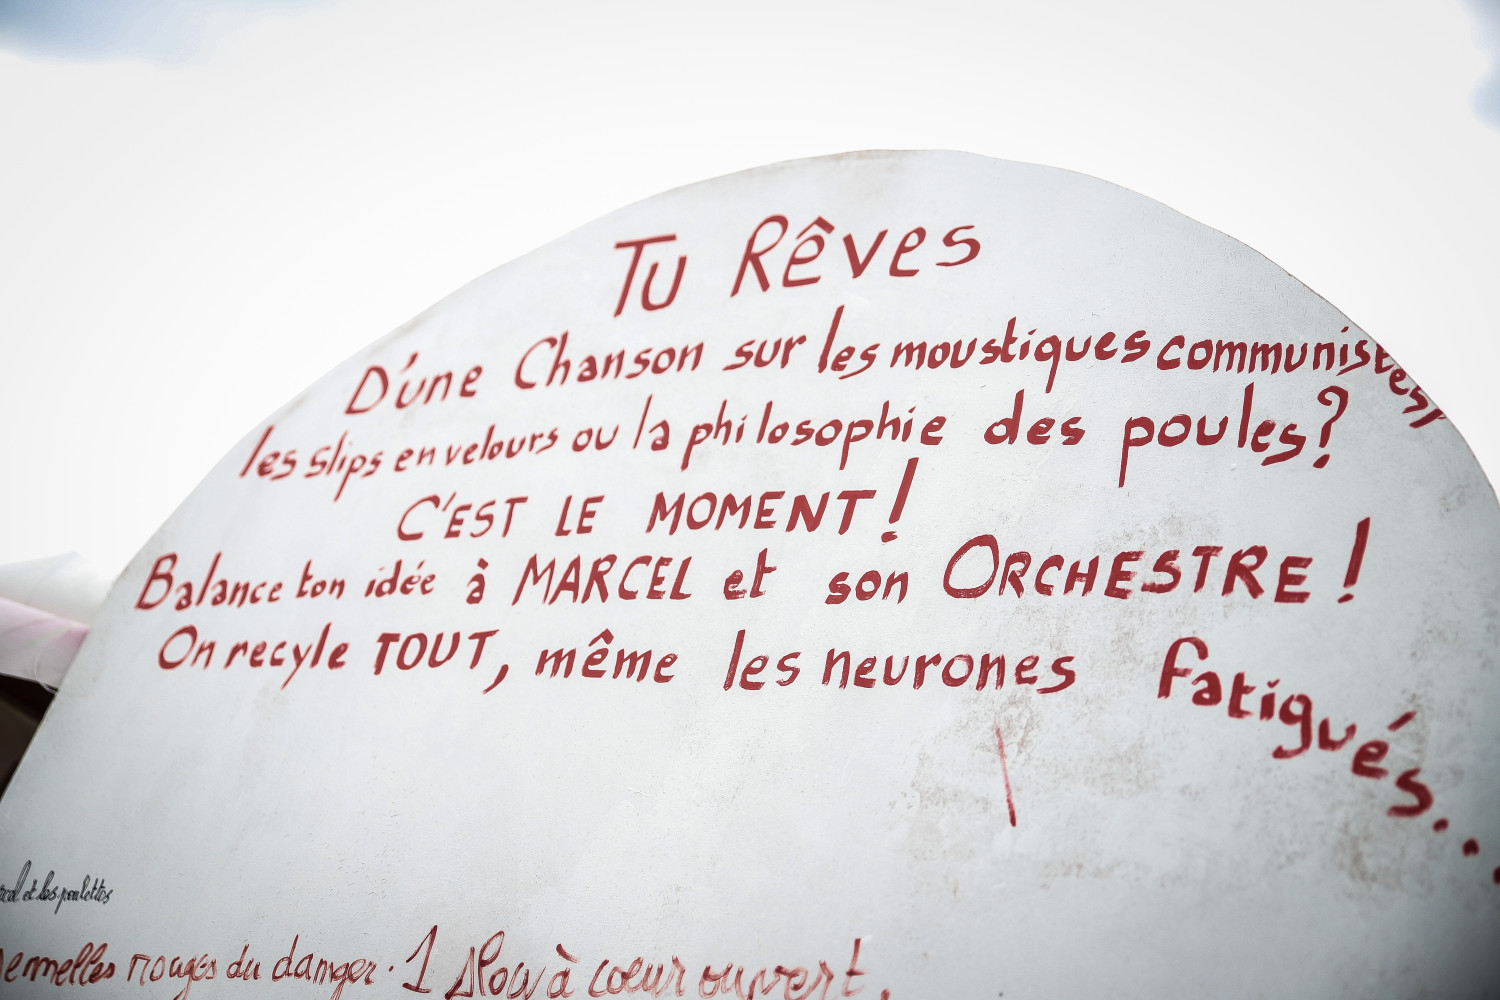 Tu Rêves
D'une Chanson sur les moustiques communistes,
les slips en velours ou la philosophie des poules?
C'EST LE MOMENT!
Balance ton idée à MARCEL et son ORCHESTRE!
On recyle TOUT, même les neurones fatigués...
et les poulettes
rouges du danger. 1 slow à cœur ouvert.